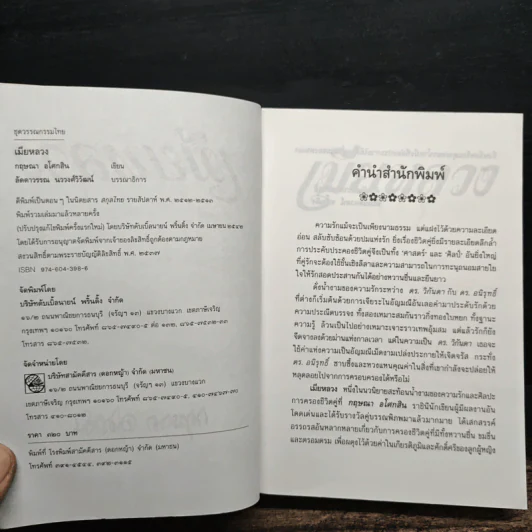 ชุดวรรณกรรมไทย
เมียหลวง
กฤษณา อโศกสิน เขียน
ลัดดาวรรณ นววงศ์วิวัฒน์ บรรณาธิการ
ตีพิมพ์เป็นตอน ๆ ในนิตยสาร สกุลไทย รายสัปดาห์ พ.ศ.
พิมพ์รวมเล่มมาแล้วหลายครั้ง
(ปรับปรุงแก้ไขพิมพ์ครั้งแรกใหม่) โดยบริษัทดับเบิ้ลนายน์ พริ้นติ้ง จำกัด
โดยได้รับการอนุญาตจัดพิมพ์จากเจ้าของลิขสิทธิ์ถูกต้องตามกฎหมาย
สงวนลิขสิทธิ์ตามพระราชบัญญัติลิขสิทธิ์ พ.ศ. ๒๕๓๗
ISBN 974-604-386-6
จัดพิมพ์โดย
บริษัทดับเบิ้ลนายน์ พริ้นติ้ง จำกัด
๑๖/๒ ถนนพาณิชยการธนบุรี (จรัญฯ ๑๓) แขวงบางแวก เขตภาษีเจริญ
กรุงเทพฯ ๑๐๑๖๐
โทรสาร
จัดจำหน่ายโดย
บริษัทสามัคคีสาร (ดอกหญ้า) จำกัด (มหาชน)
๑๖/๒ ถนนพาณิชยการธนบุรี (จรัญฯ ๑๓) แขวงบางแวก
เขตภาษีเจริญ กรุงเทพฯ ๑๐๑๖๐
โทรสาร
ราคา บาท
พิมพ์ที่ โรงพิมพ์สามัคคีสาร (ดอกหญ้า) จำกัด (มหาชน)
โทรศัพท์
คำนำสำนักพิมพ์
ความรักแม้จะเป็นเพียงนามธรรม แต่แฝงไว้ด้วยความละเอียด
อ่อน สลับซับซ้อนด้วยปมแห่งรัก ยิ่งเรื่องชีวิตคู่ยิ่งมีรายละเอียดลึกล้ำ
การประคับประคองชีวิตคู่จึงเป็นทั้ง 'ศาสตร์' และ 'ศิลป์' อันยิ่งใหญ่
ที่คู่รักจะต้องใช้ชั้นเชิงลีลาและความสามารถในการทะนุถนอมสายใย
ให้รักสอดประสานกันได้อย่างหวานชื่นและยืนยาว
ดั่งน้ำงามของความรักระหว่าง ดร. วิกันดา กับ ดร. อนิรุทธิ์
ที่ต่างก็เริ่มต้นด้วยการเจียระไนอัญมณีอันเลอค่ามาประดับรักด้วย
ความประณีตบรรจง ทั้งสองเหมาะสมกันราวกิ่งทองใบหยก ทั้งฐานะ
ความรู้ ล้วนเป็นไปอย่างเหมาะเจาะราวเทพอุ้มสม แต่แล้วรักก็ยัง
จืดจางลงด้วยม่านแห่งกาลเวลา แต่ในความเป็น ดร. วิกันดา เธอจะ
ใช้ค่าแห่งความเป็นอัญมณีเม็ดงามเปล่งประกายให้เจิดจรัส กระทั่ง
ดร. อนิรุทธิ์ ซาบซึ้งและหวงแหนคุณค่าในสิ่งที่เขากำลังจะปล่อยให้
หลุดลอยไปจากการครอบครองได้หรือไม่
เมียหลวง หนึ่งในนวนิยายสะท้อนน้ำงามของความรักและศิลปะ
การครองชีวิตคู่ที่ กฤษณา อโศกสิน ราชินีนักเขียนผู้มีผลงานอัน
โดดเด่นและได้รับรางวัลคู่บรรณพิภพมาแล้วมากมาย ได้เสกสรรค์
อรรถรสอันหลากหลายเกี่ยวกับการครองชีวิตคู่ที่มีทั้งหวานชื่น ขมขื่น
และตรอมตรม เพื่อผดุงไว้ด้วยค่าในเกียรติภูมิและศักดิ์ศรีของลูกผู้หญิง